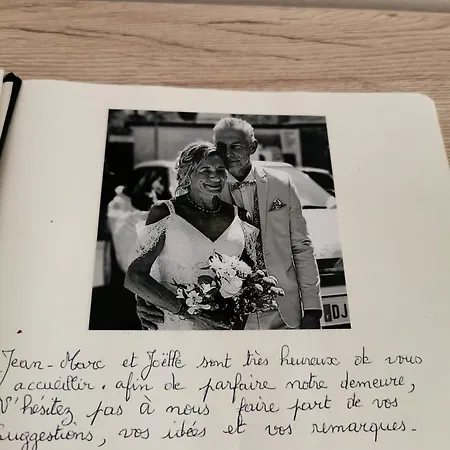 DJ
Jean-Marc et Joëlle sont très heureux de vous
accueillir. afin de parfaire notre demeure,
N'hésitez pas à nous faire part de vos
suggestions, vos idées et vos remarques.